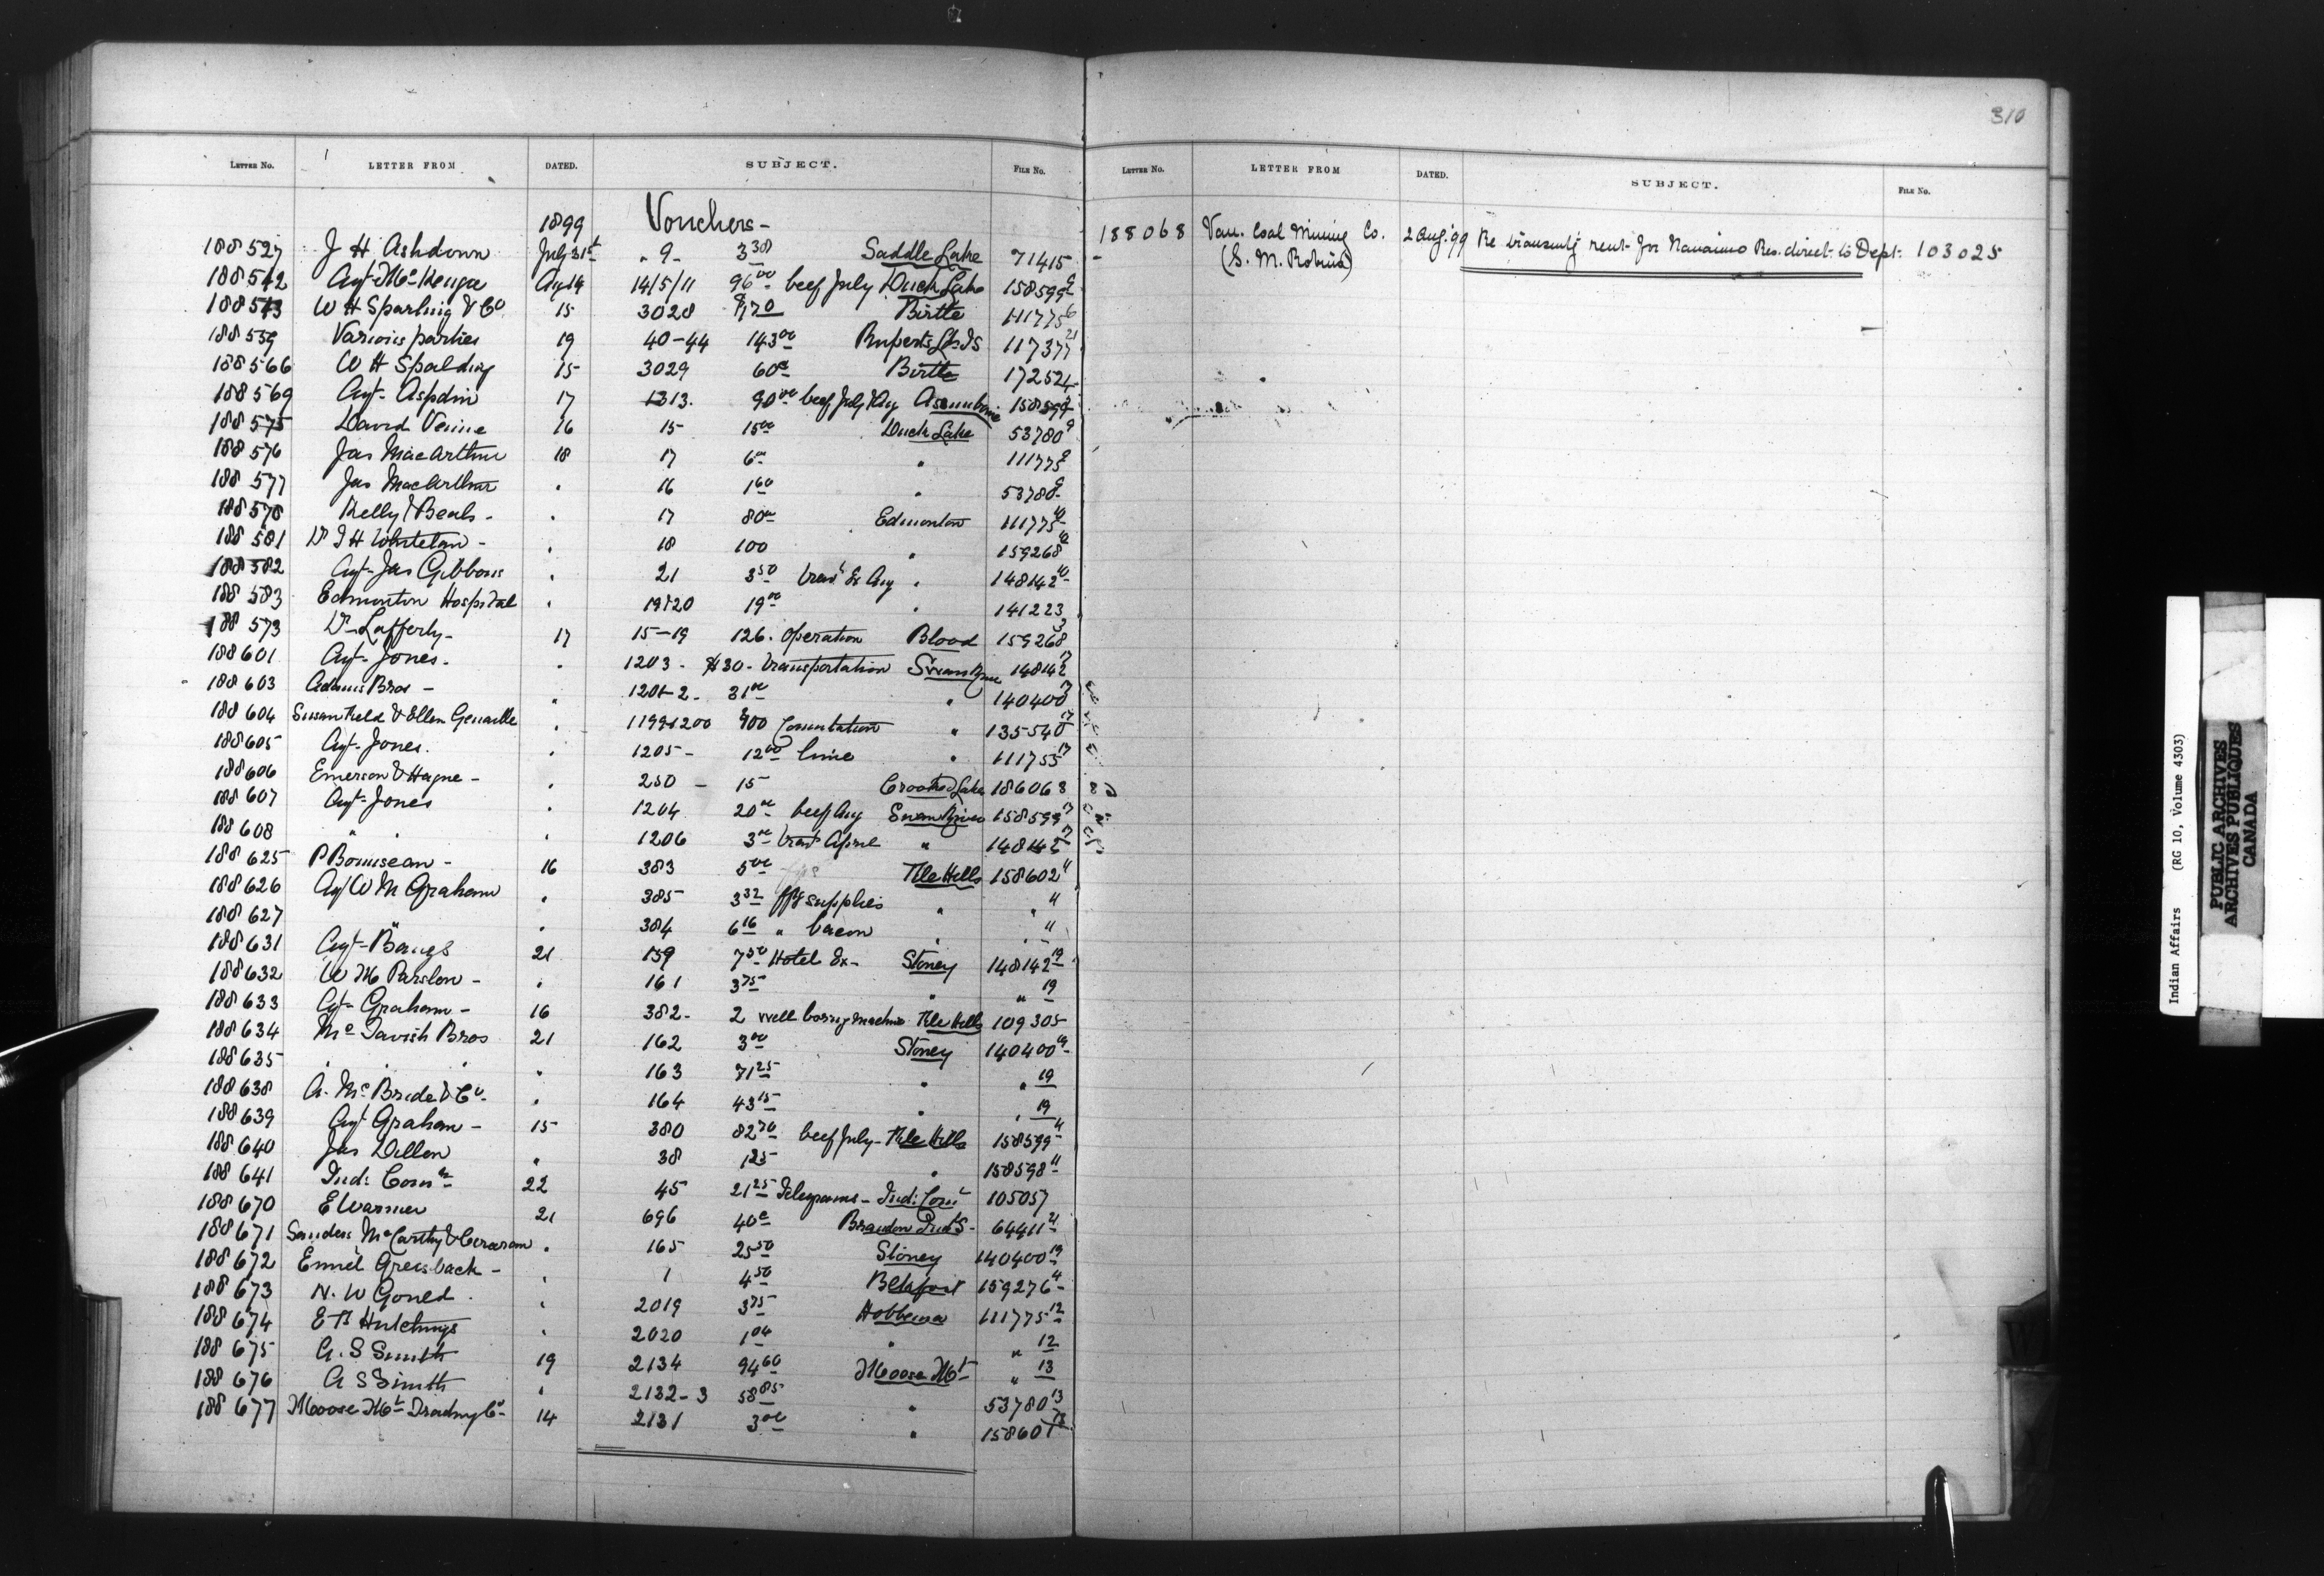 310
LETTER NO. LETTER FROM DATED. SUBJECT. FILE NO.
1899 Vouchers-
188527 J H Ashdown July 31st " 9- 3 30 Saddle Lake 71415
188542 Agt McKenzie Aug 14 14/5/11 96 00 beef July Duck Lake 158599 9
188543 W H Sparling & Co 15 3028 Birtle 111775 6
188559 Various parties 19 40-44 143 00 Ruperts Ld IS 117377 21
188566 W H Spalding 15 3029 60c Birtle 172524
188569 Agt- Aspdin 17 1313. 90 00 beef July & Aug Assiniboine 158599
188575 David Venne 16 15 15 00 Duck Lake 53780 9
188576 Jas MacArthur 18 17 6 00 " 111775 9
188577 Jas MacArthur " 16 1 60 " 53780 9
188578 Kelly & Beals- " 17 80c Edmonton 111775 10
188581 Dr I H Whitelaw- " 18 100 " 159268 10
188582 Agt- Jas Gibbons " 21 3 50 trav'l Ex Aug " 148142 10
188583 Edmonton Hospital " 19&20 19 00 " 141223
188573 Dr Lafferty- 17 15-19 126. operation Blood 159268 3
188601 Agt- Jones- " 1203- $30- transportation Swan River 148142 17
188603 Adams Bros- " 1201-2- 31 00 " 140400 17
188604 Susan Keld & Ellen Genaille " 1199&1200 " 135540 17
188605 Agt- Jones. " 1205- 12 00 lime " 111755 17
188606 Emerson & Hague- " 250- 15 Crooked Lake 186068
188607 Agt- Jones " 1204 20 00 beef Aug Swan River 158599 17
188608 " " " 1206 3 00 trav'l Ex " 148142 17
188625 P Bourisean- 16 383 5 00 File Hills 158602 11
188626 Agt W M Graham " 385 3 32 frt supplies " " 11
188627 " " 384 6 16 " bacon " " 11
188631 Agt- Bangs 21 159 7 50 Hotel Ex- Stoney 148142 19
188632 W M Parslow- " 161 3 75 " " 19
188633 Agt- Graham- 16 382- 2 well boring machines File Hills 109305
188634 McTavish Bros 21 162 3 00 Stoney 140400 19
188635 " " " 163 71 25 " " 19
188638 A. McBride & Co- " 164 43 15 " " 19
188639 Agt Graham- 15 380 82 70 beef July- File Hills 158599 11
188640 Jas Dillon " 38 1 25 " 158598 11
188641 Ind: Comr 22 45 21 25 Telegrams- Ind: Comr 105057
188670 E Warner 21 696 40c Brandon Ind S- 64411 21
188671 Sanders McCarthy & " 165 25 50 Stoney 140400 19
188672 Emil Greisbach- " 1 4 50 159276 4
188673 N. W Gould. " 2019 3 75 Hobbema 111775 12
188674 E F Hutchings " 2020 1 04 " " 12
188675 A. S Smith 19 2134 94 60 Moose Mt " 13
188676 A S Smith " 2132-3 58 85 " 53780 13
188677 Moose Mt Trading Co- 14 2131 3 00 " 158601 13
LETTER NO. LETTER FROM DATED. SUBJECT. FILE NO.
188068 Van. Coal Mining Co. 2 Aug '99 Re transmitg rent for Nanaimo Res. direct to Dept. 103025
(S. M. Robins)
Indian Affairs (RG 10, Volume 4303)
PUBLIC ARCHIVES
ARCHIVES PUBLIQUES
CANADA